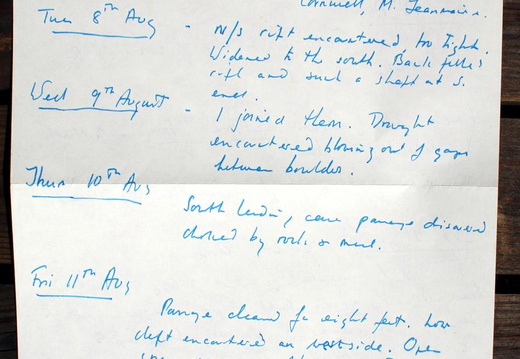 Cornwell, M. Jeanmaire.
Tues 8th Aug - N/S rift encountered, too tight.
Widened to the south. Back filled
rift and sunk a shaft at S.
end.
Wed 9th August - I joined them. Draught
encountered blowing out of gaps
between boulders.
Thur 10th Aug
South leading cave passage discovered
choked by rock & mud.
Fri 11th Aug
Passage cleared for eight feet. Low
cleft encountered on west side. Open